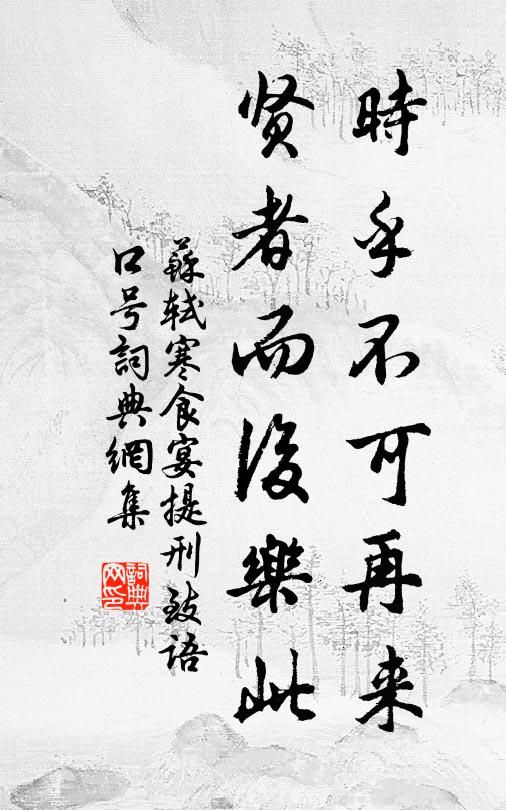 時乎不可再来
贤者而後樂此
蘇轼寒食宴提刑致语
口号詞典網集
詞典
网印